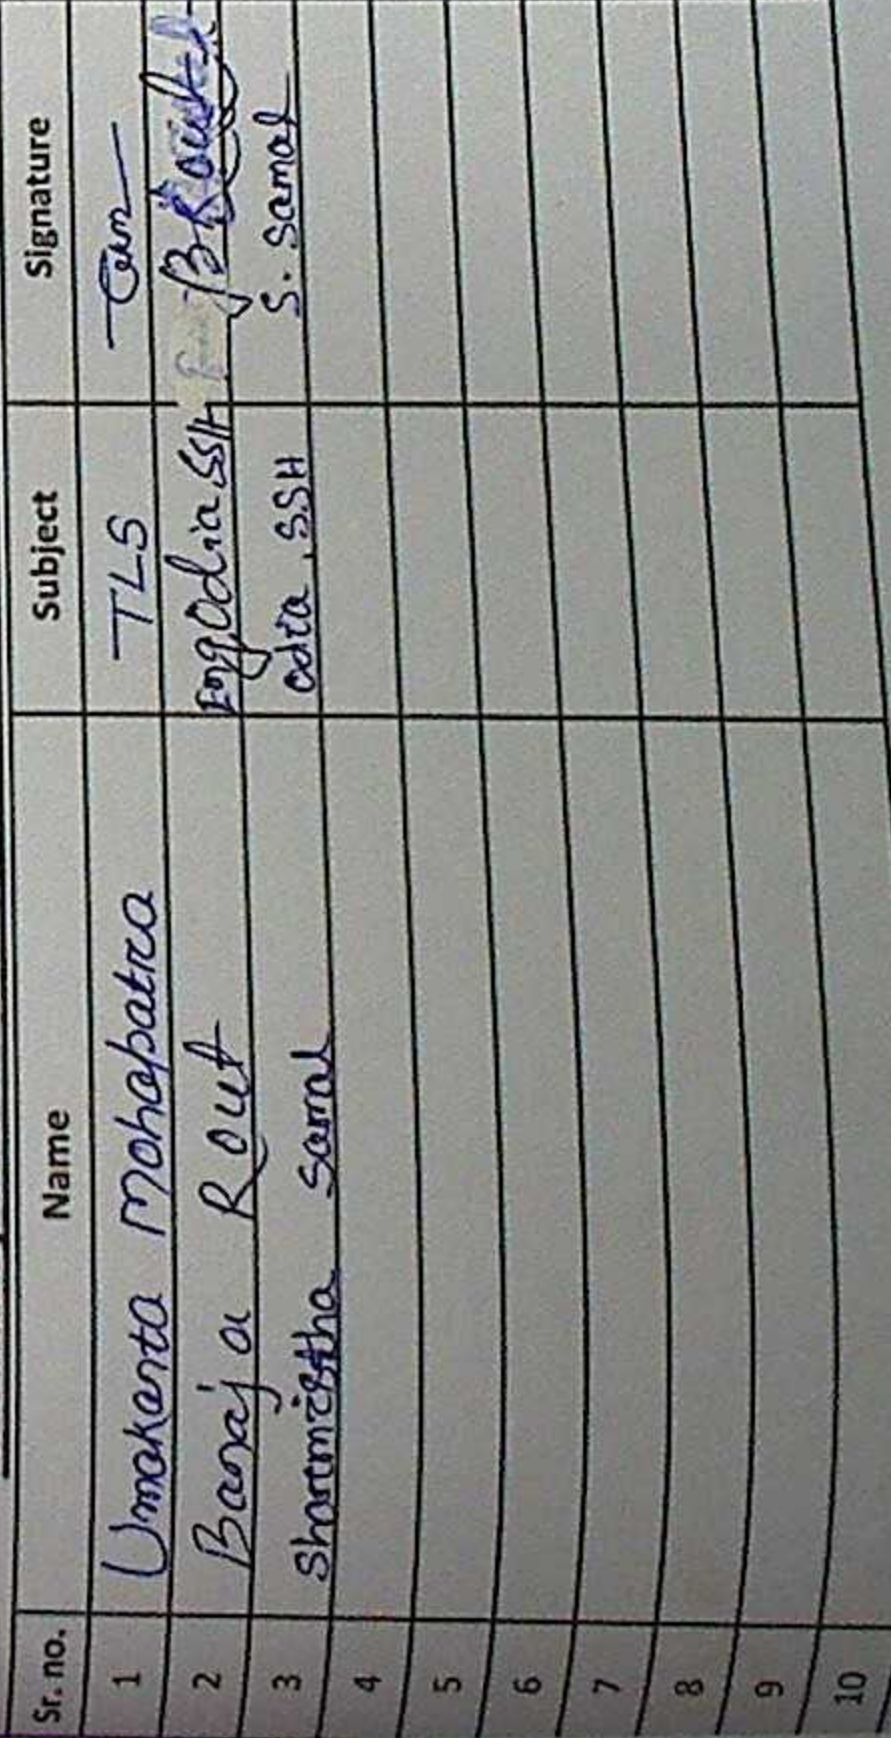 Sr. no. Name Subject Signature
1 Umakanta Mohapatra TLS
2 Banaja Rout Eng,Odia,SSH BRout
3 Sharmistha Samal odia,SSH S. Samal
4
5
6
7
8
9
10